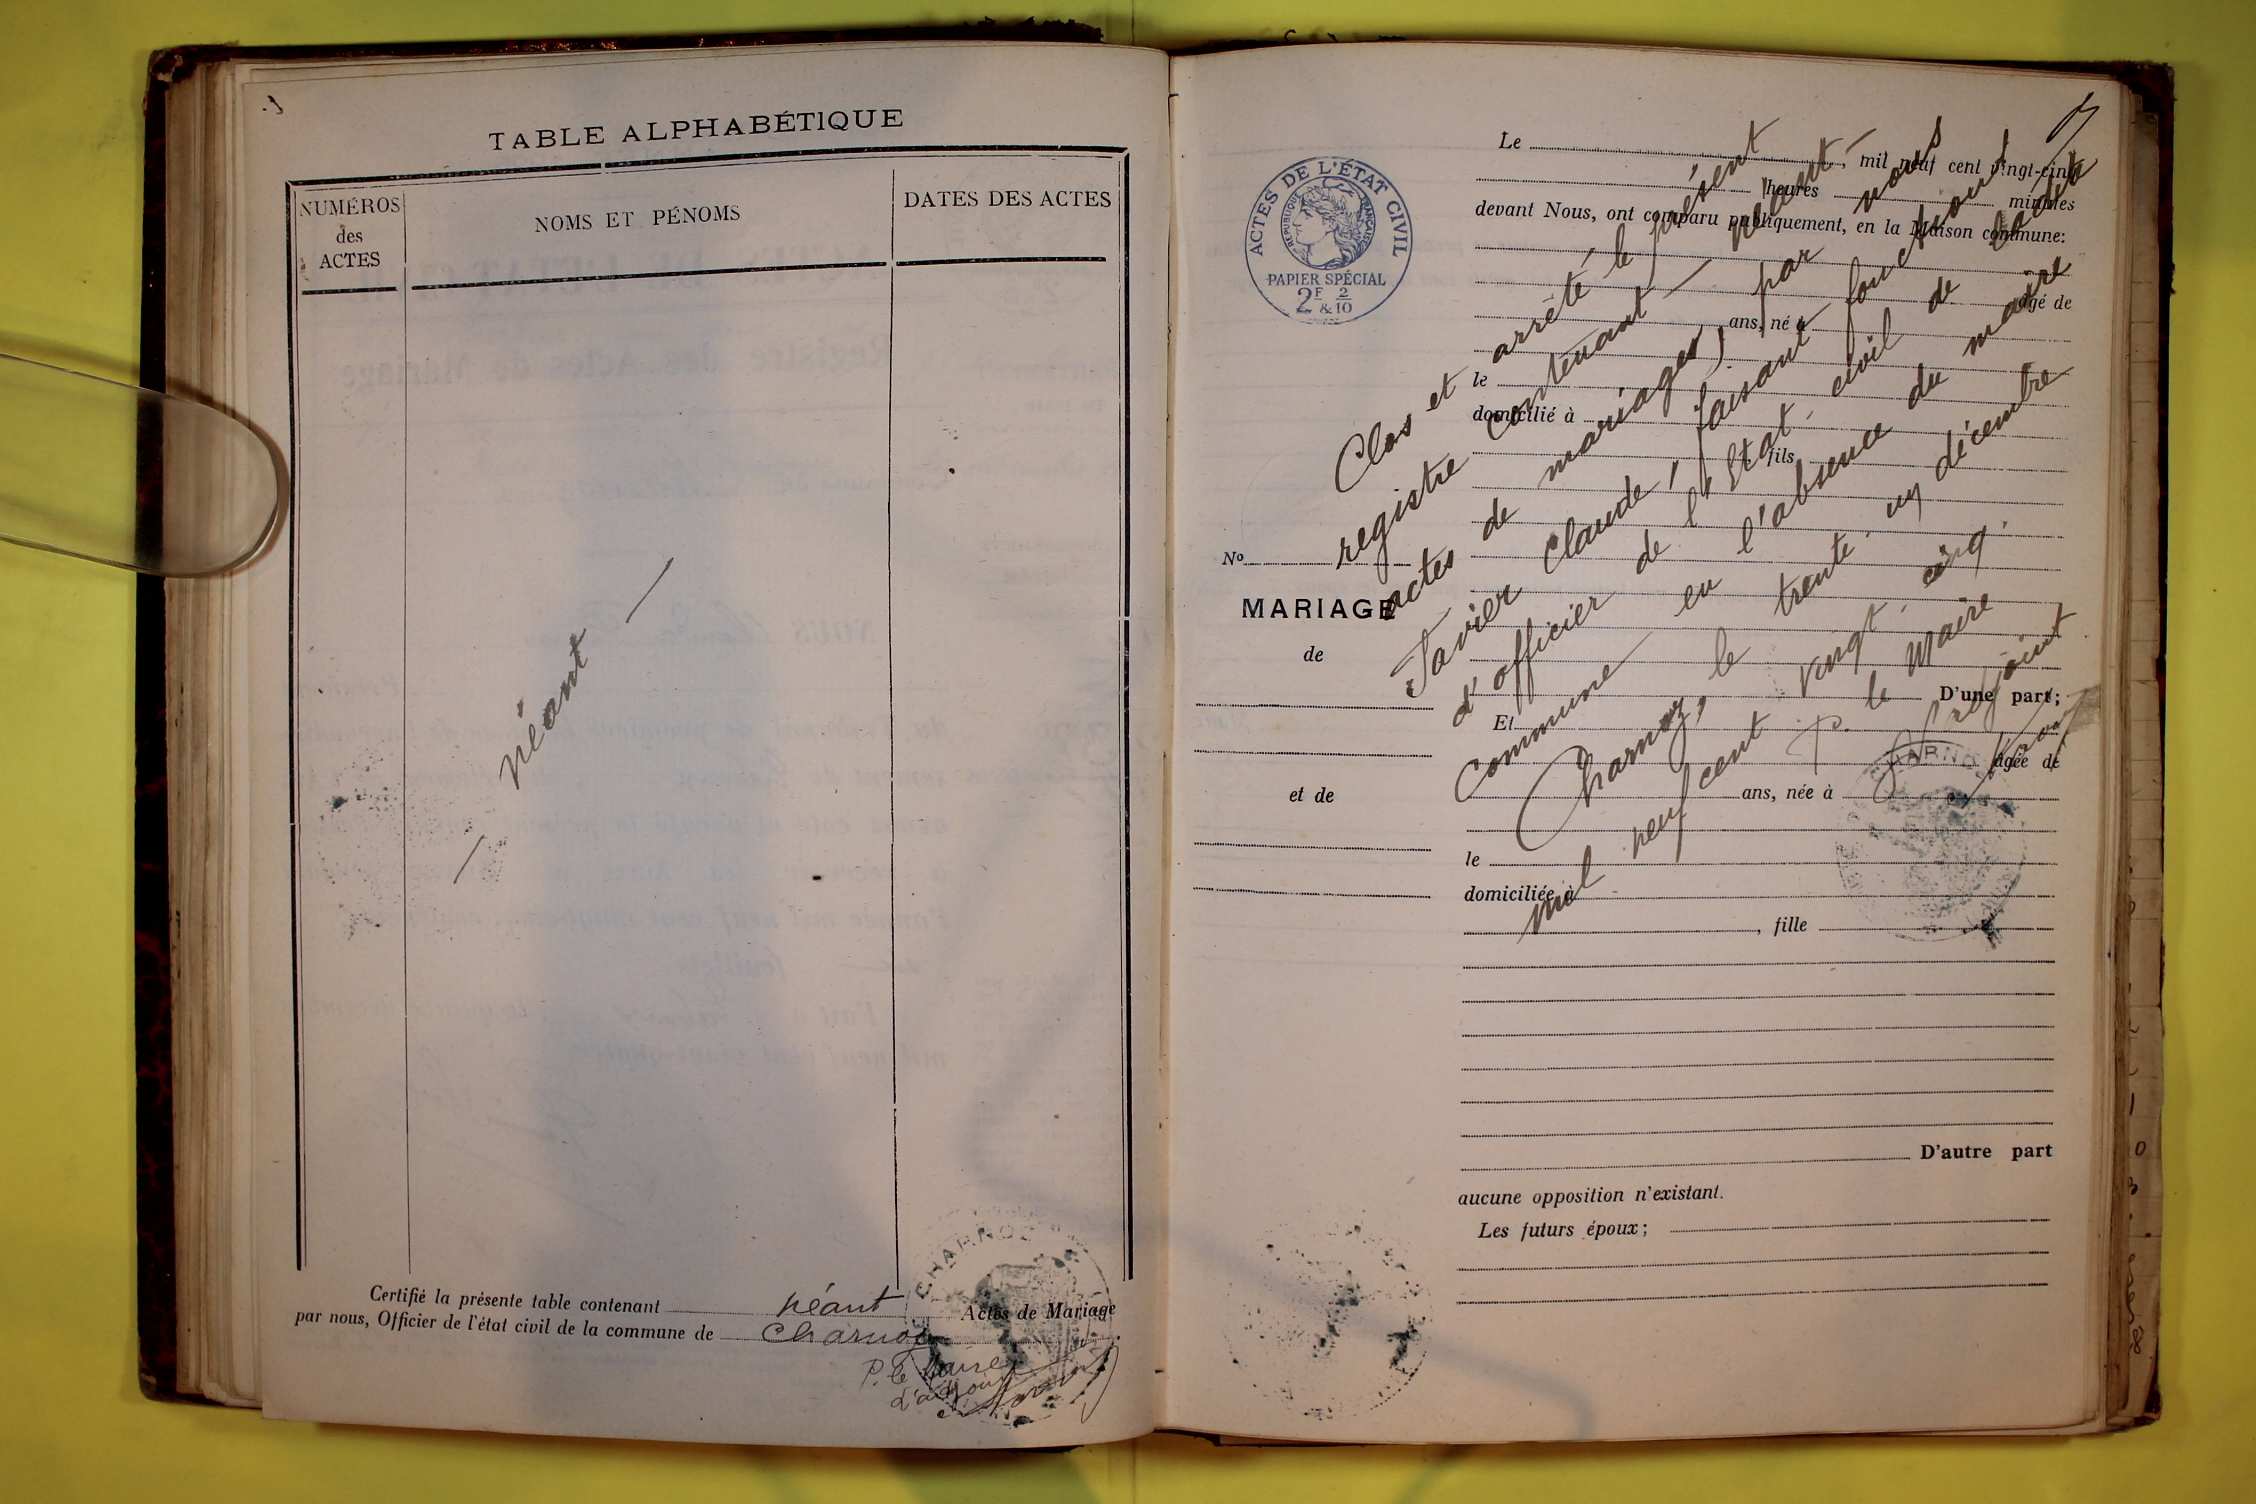 TABLE ALPHABÉTIQUE
NUMÉROS
des
ACTES
NOMS ET PÉNOMS
DATES DES ACTES
— néant —
Certifié la présente table contenant néant Actes de Mariage
par nous, Officier de l'état civil de la commune de Charnoz
P. le Maire
L'adjoint
CHARNOZ
ACTES DE L'ÉTAT CIVIL
RÉPUBLIQUE FRANÇAISE
PAPIER SPÉCIAL
2F & 2/10
No
MARIAGE
de
et de
Le , mil neuf cent vingt-cinq
heures minutes
devant Nous, ont comparu publiquement, en la Maison commune:
âgé de
ans, né à
le
domicilié à
fils
D'une part;
Et
âgée de
ans, née à
le
domiciliée à
, fille
D'autre part
aucune opposition n'existant.
Les futurs époux;
Clos et arrêté le présent
registre contenant — néant —
actes de mariages, par nous
Tavier Claude, faisant fonctions
d'officier de l'Etat-civil de ladite
Commune en l'absence du maire
Charnoz, le trente-un décembre
mil neuf cent vingt-cinq.
p. le Maire
L'adjoint
CHARNOZ